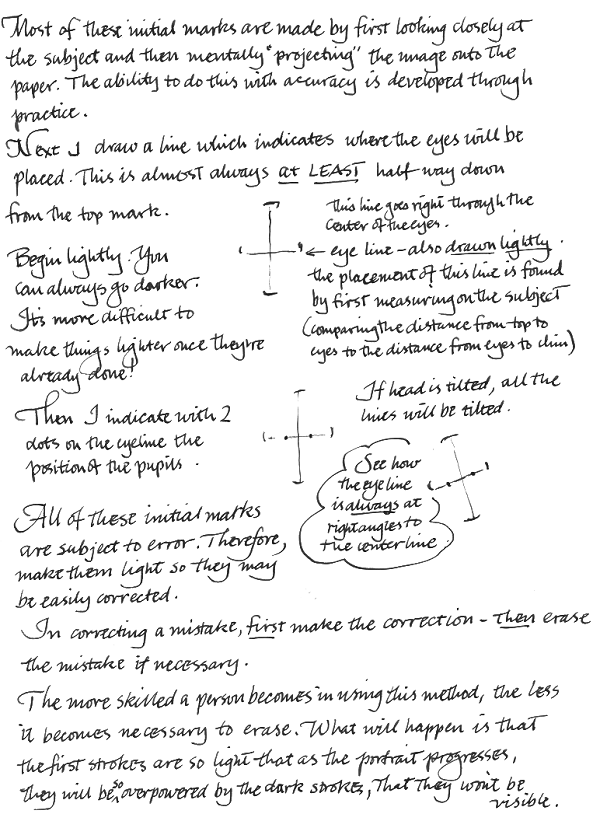 Most of these initial marks are made by first looking closely at
the subject and then mentally "projecting" the image onto the
paper. The ability to do this with accuracy is developed through
practice.
Next I draw a line which indicates where the eyes will be
placed. This is almost always at LEAST half way down
from the top mark.
This line goes right through the
center of the eyes.
← eye line - also drawn lightly.
the placement of this line is found
by first measuring on the subject
(comparing the distance from top to
eyes to the distance from eyes to chin)
Begin lightly. You
can always go darker.
It's more difficult to
make things lighter once they're
already done!
If head is tilted, all the
lines will be tilted.
Then I indicate with 2
dots on the eyeline the
position of the pupils.
See how
the eye line
is always at
right angles to
the center line
All of these initial marks
are subject to error. Therefore,
make them light so they may
be easily corrected.
In correcting a mistake, first make the correction - then erase
the mistake if necessary.
The more skilled a person becomes in using this method, the less
it becomes necessary to erase. What will happen is that
the first strokes are so light that as the portrait progresses,
they will be so overpowered by the dark strokes, that they won't be
visible.